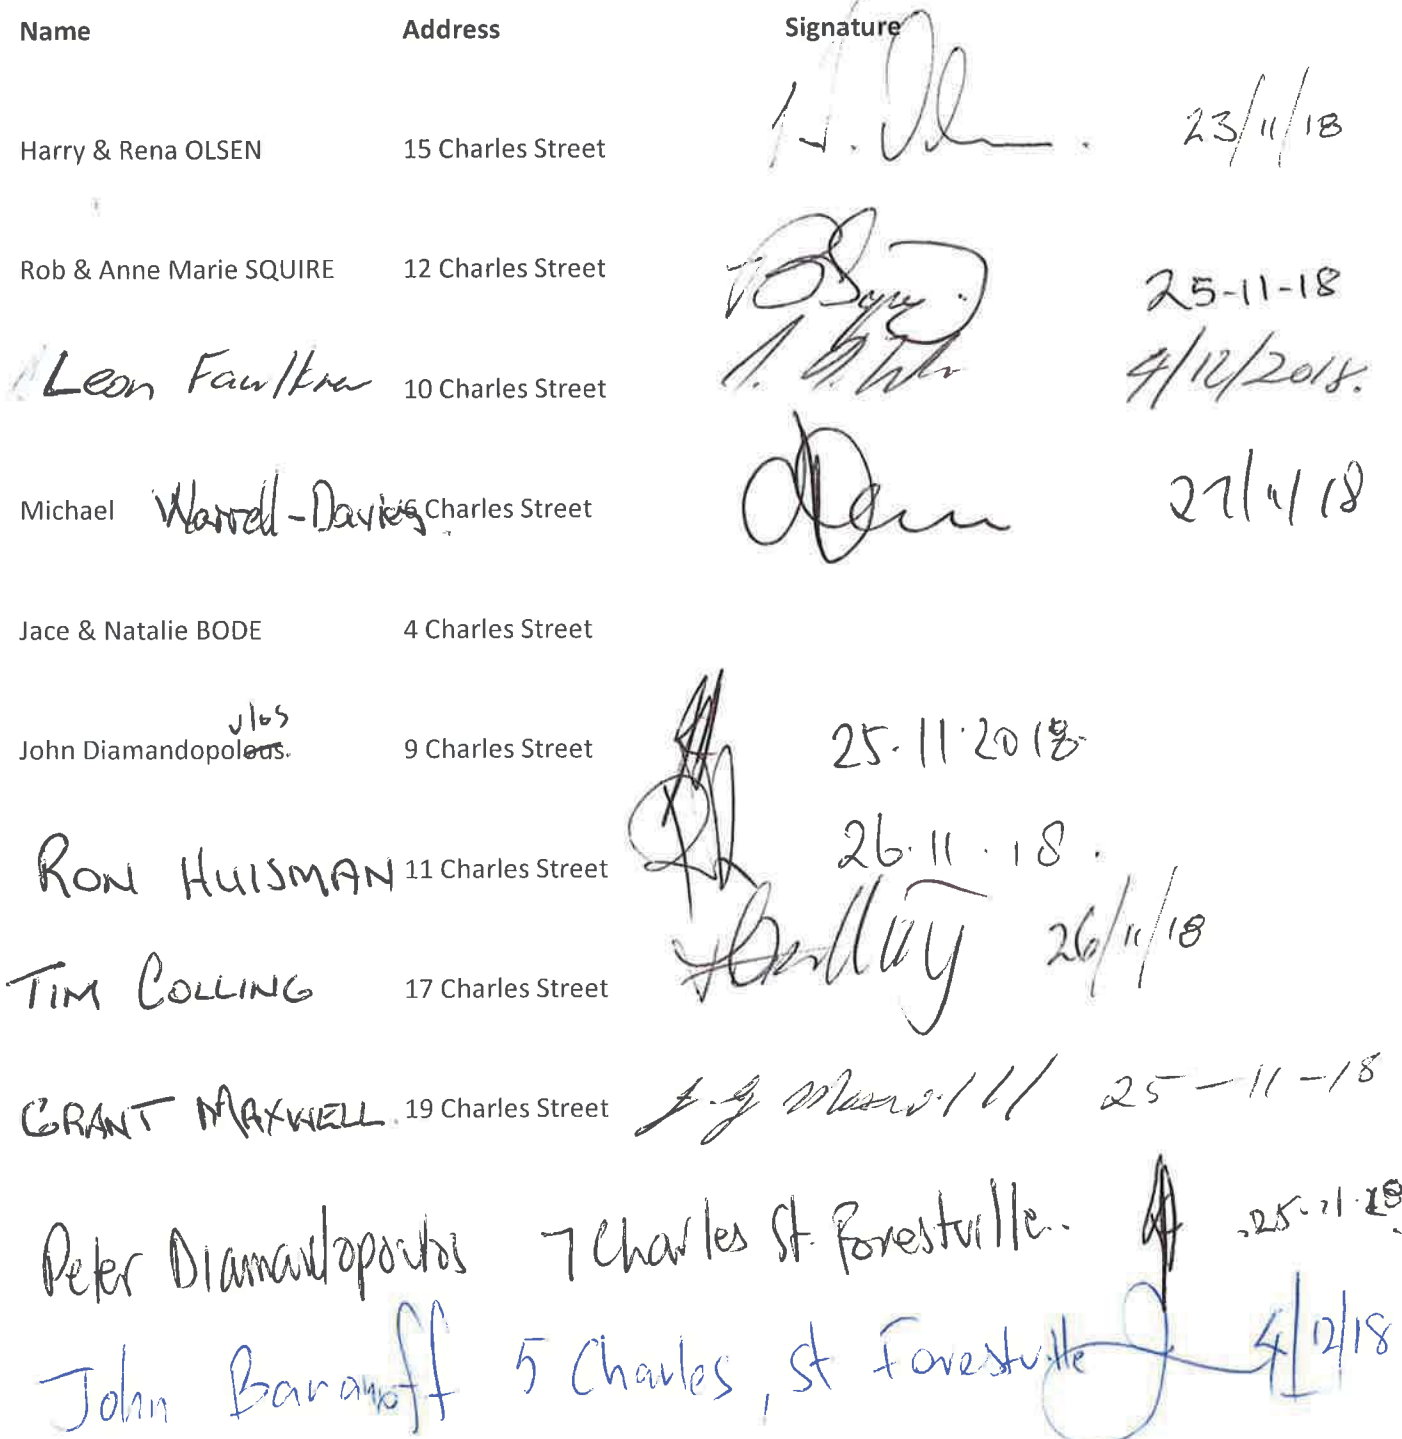 Name Address Signature
Harry & Rena OLSEN 15 Charles Street H. Olsen. 23/11/18
Rob & Anne Marie SQUIRE 12 Charles Street 25-11-18
Leon Faulkner 10 Charles Street 4/12/2018.
Michael Warrell-Davies 6 Charles Street 27/11/18
Jace & Natalie BODE 4 Charles Street
ulos
John Diamandopolous. 9 Charles Street 25.11.2018
RON HUISMAN 11 Charles Street 26.11.18.
TIM COLLING 17 Charles Street 26/11/18
GRANT MAXWELL. 19 Charles Street 25-11-18
Peter Diamandopoulos 7 Charles St. Forestville. 25.11.18
John Baranoff 5 Charles, St Forestville 4/12/18